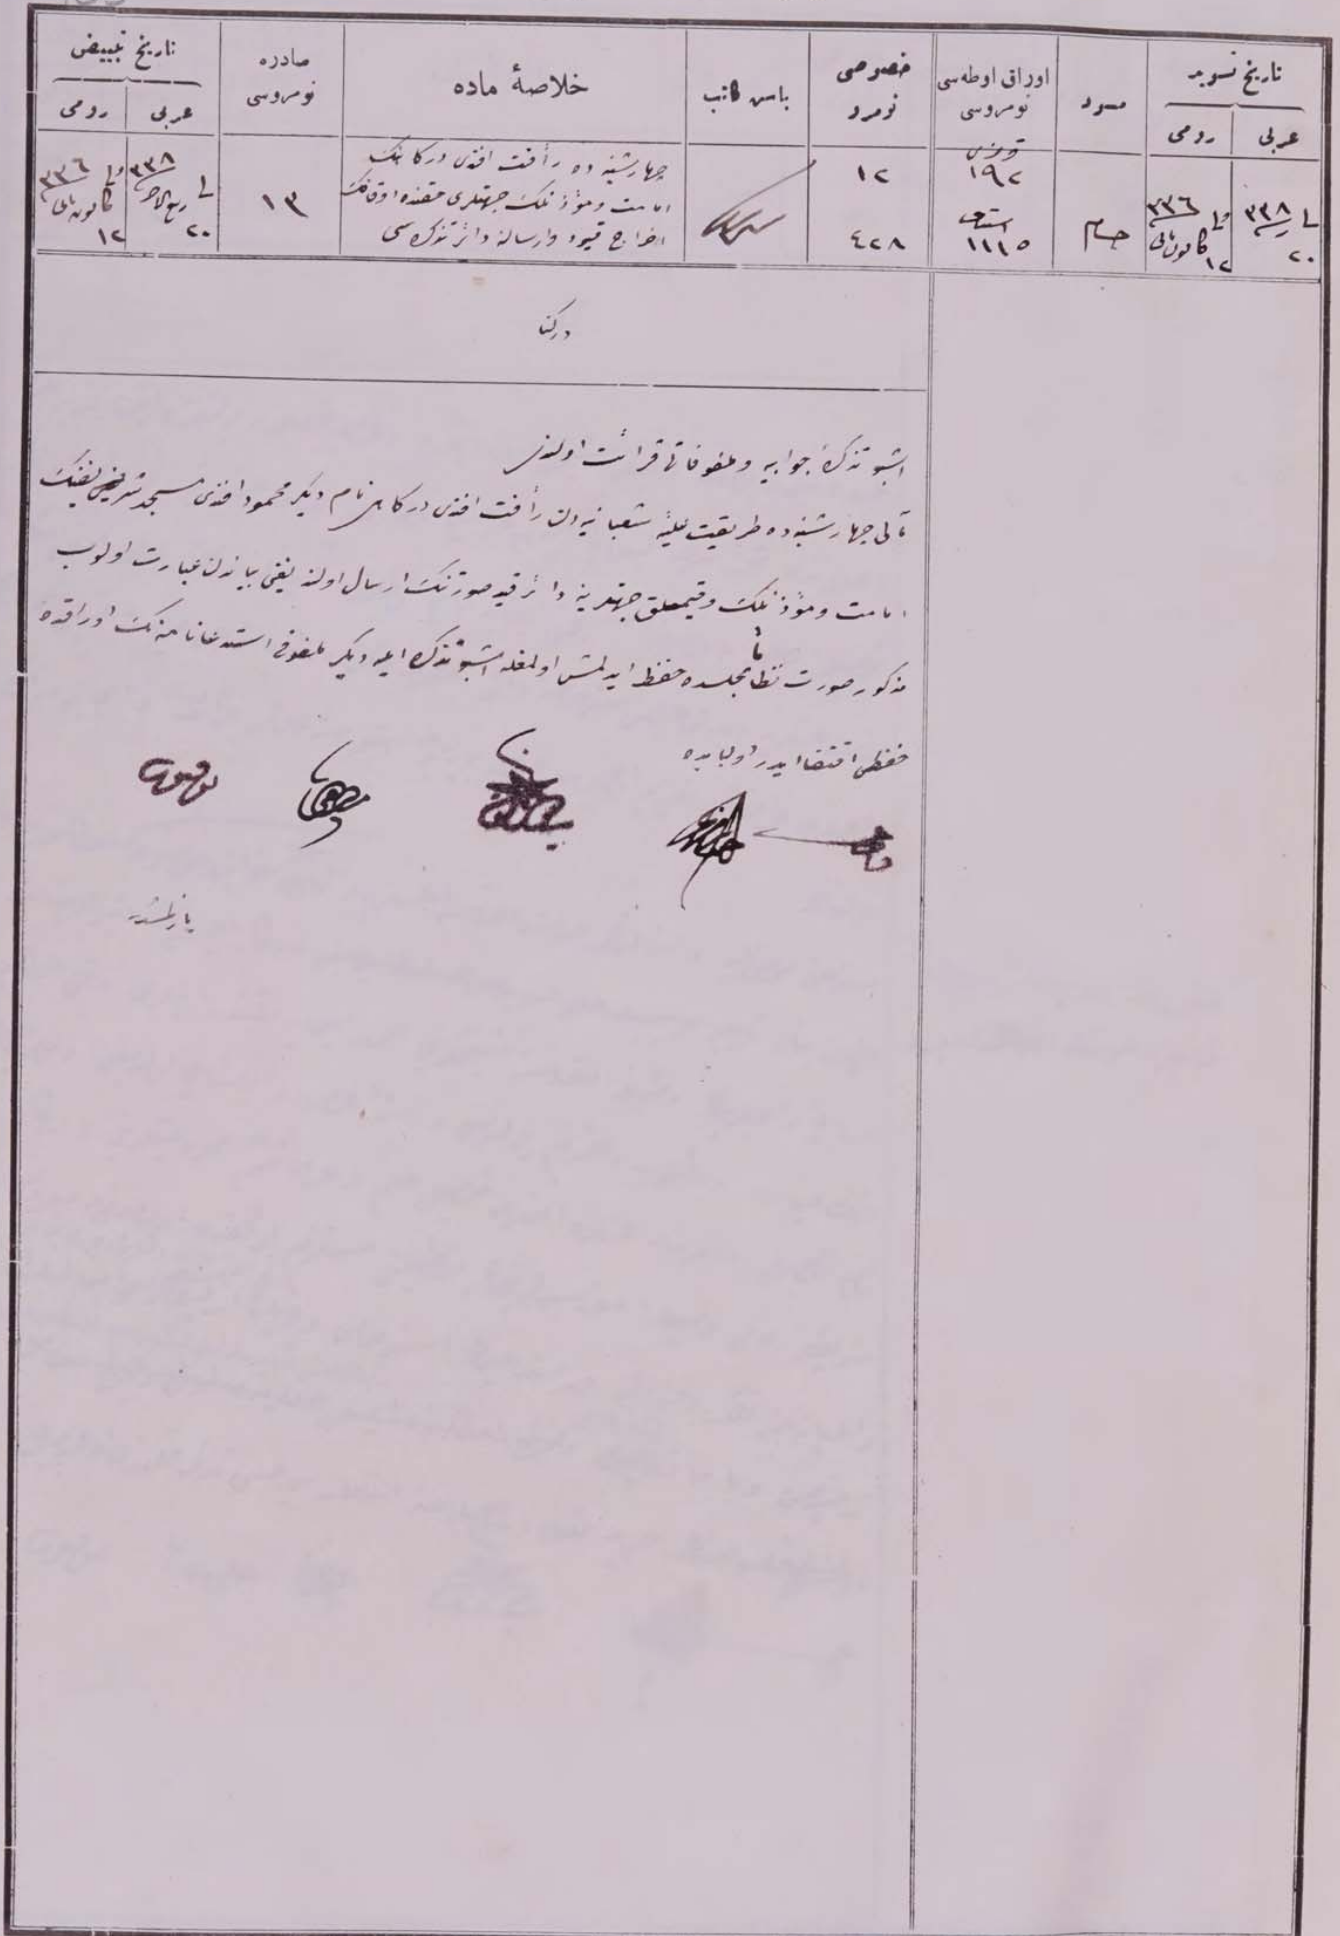 تاریخ تسوید
عربی
رومی
مسود
اوراق اوطه‌سی نومروسی
خصوصی نومرو
باش کاتب
خلاصهٔ ماده
صادره نومروسی
تاریخ تبییض
عربی
رومی
٣٣٨
٢٠
٣٣٦
كانون ثانی
١٢
حسام
١٩٢
١١١٥
١٢
٤٢٨
چهارشنبه ده رأفت افندی درگاهنك
امامت ومؤذنلك جهتلری حقنده اوقافك
اخراج قیود وارسالنه دائر تذكره سی
١٣
٣٣٨
ربیع الاخر
٢٠
٣٣٦
كانون ثانی
١٢
دركنار
اشبو تذكرهٔ جوابیه وملفوفاتی قرائت اولندی
مآلی چهارشنبه ده طریقت علیهٔ شعبانیه دن رأفت افندی درگاهی نام دیكر محمود افندی مسجد شریفنك
امامت ومؤذنلك وقیملق جهتلرینه دائر قید صورتنك ارسال اولندیغی بیانندن عبارت اولوب
مذكور صورت نظاماً مجلسده حفظ ایدلمش اولمغله اشبو تذكره ایله دیكر ملفوفی استدعانامه نك اوراقده
حفظی اقتضا ایدر اولبابده
یازلمشدر